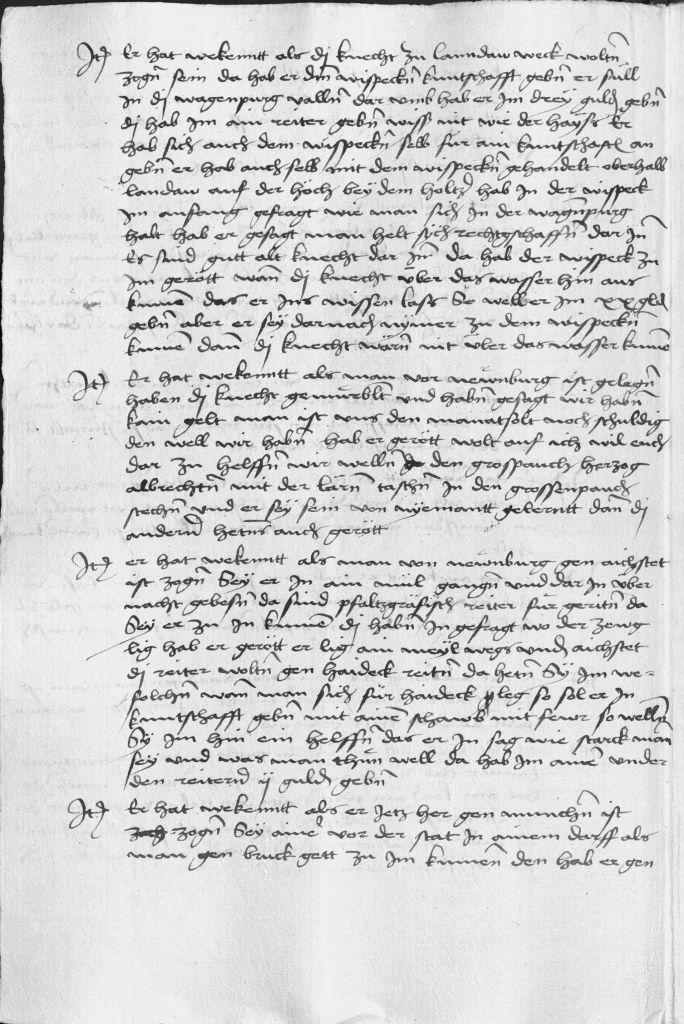 Itm Er hat wekenntt als dj knecht zu lanndaw weck woltn
zogn sein da hab er dem wispeckn kuntschafft gebn er sull
In dj wagenpurg valln dar umb hab er Im drey guldn gebn
dj hab Im ain reiter gebn wiss nit wie der hayss Er
hab sich auch dem wispeckn selb fur ain kuntschafft an
gebn er hab auch selb mit dem wispeckn gehandelt oberhalb
landaw auf der hoch bey dem holtz hab In der wispeck
im anfang gefragt wie man sich In der wagnpurg
halt hab er gesagt man helt sich rechtgschaffn dar In
Es sind gutt alt knecht dar Inn da hab der wispeck zu
im gerett wann dj knecht uber das wasser hin aus
kumen das er Ins wissen lass So well er im xx gldn
gebn aber er sey darnach nymer zu dem wispeckn
kumen dann dj knecht warn nit uber das wasser kumen
Itm Er hat wekenntt als man vor newnburg ist gelegn
haben dj knecht gemurblt und habn gesagt wir habn
kain gelt man ist uns den manatsolt noch schuldig
den well wir habn hab er gerett wolt auf ich wil euch
dar zu helffn wir welln den grospauch herzog
albrechtn mit der larn taschn In den grossenpauch
stechn und er sey sein von nyemantt gelerntt dann dj
andern hetns auch gerett
Itm er hat wekenntt als man von newnburg gen aichstet
ist zogn Sey er In ain mul gangn und dar In uber
nacht gebesn da sind pfaltzgrafisch reiter fur geritn da
Sey er zu In kumen dj habn In gefragt wo der zewg
lig hab er gerett er lig ain meyl wegs undn aichstet
dj reiter woltn gen haideck reitn da hetn Sy Im we-
folchn wann man sich fur haideck leg so sol er In
kuntschafft gebn mit ainem schawb mit fewr so welln
Sy Im hin ein helffn das er In sag wie starck man
sey und was man thun well da hab Im ainer under
den reitern ij guldn gebn
Itm Er hat wekenntt als er Ietz her gen munchn ist
zogn Sey ainer vor der stat In ainem dorff als
man gen bruck gett zu Im kumen den hab er gen